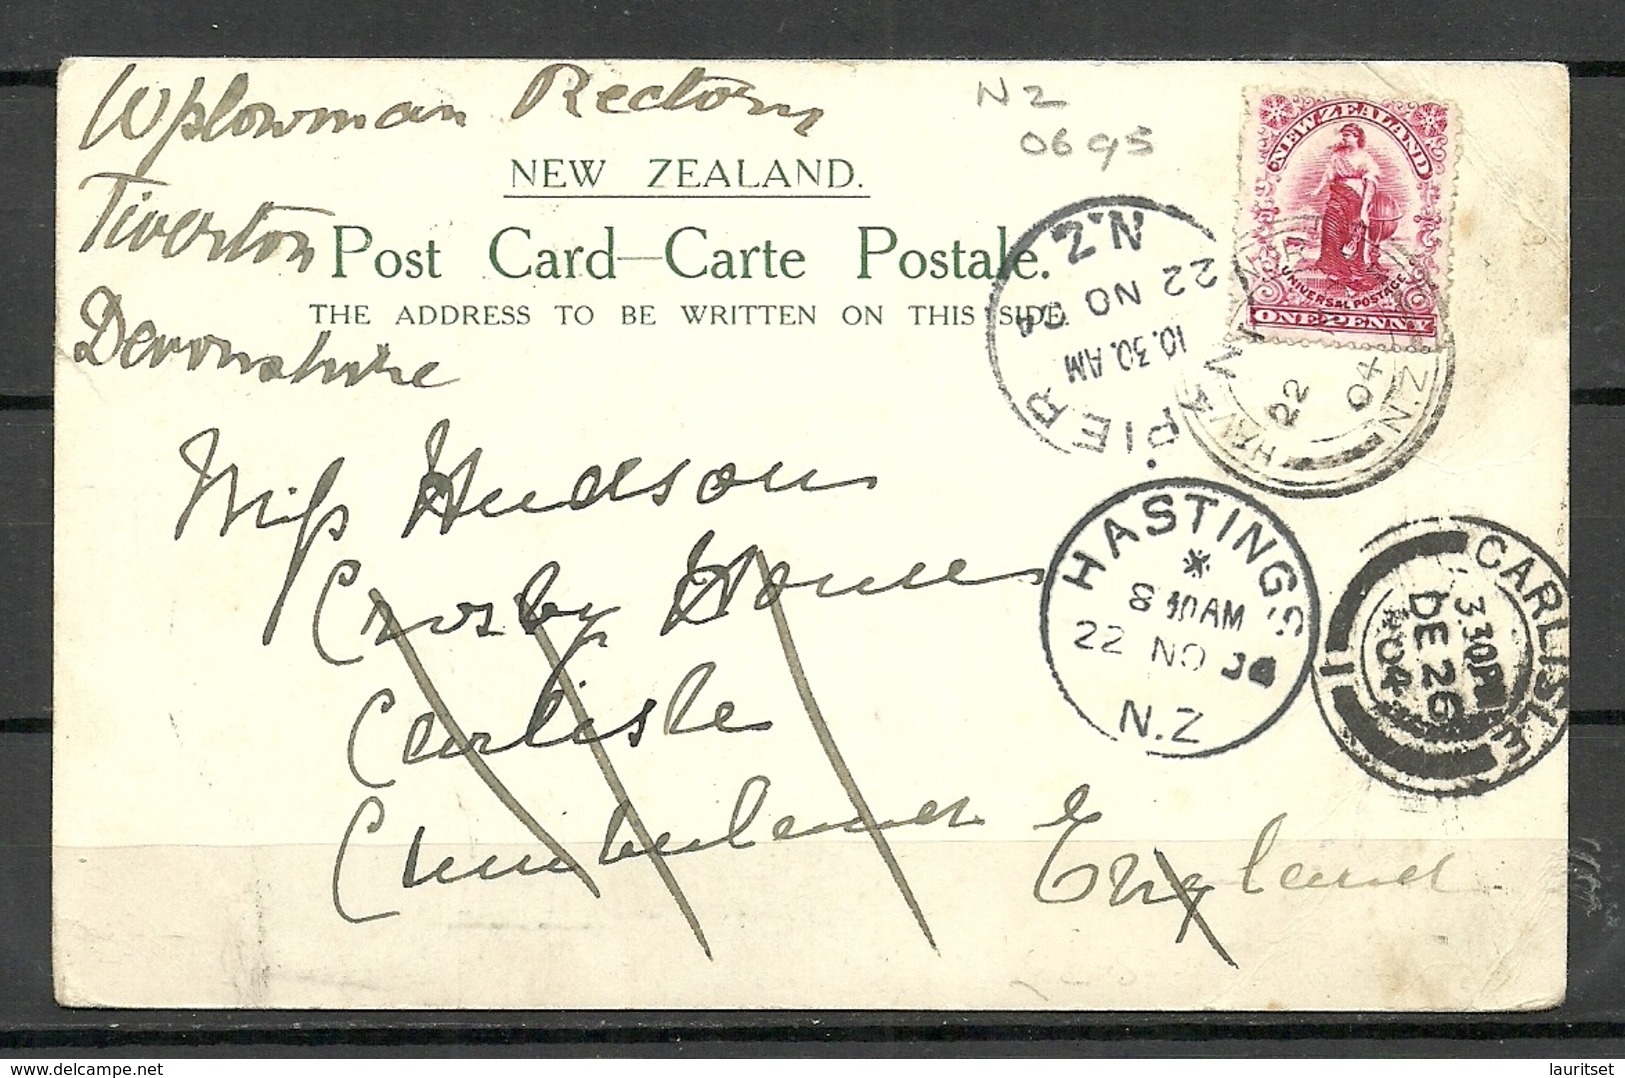 Wplowman Rectory
Tiverton
Devonshire
N Z
0695
NEW ZEALAND.
Post Card—Carte Postale.
THE ADDRESS TO BE WRITTEN ON THIS SIDE.
Miss Hudson
Crosby House
Carlisle
Cumberland England
NEW ZEALAND
UNIVERSAL POSTAGE
ONE PENNY
N.Z.
22 NO 04
10.30.AM
PIER
22
04
N.Z
HASTINGS
8 30AM
22 NO
N.Z
CARLISLE
3.30PM
DE 26
04
1
lauritset